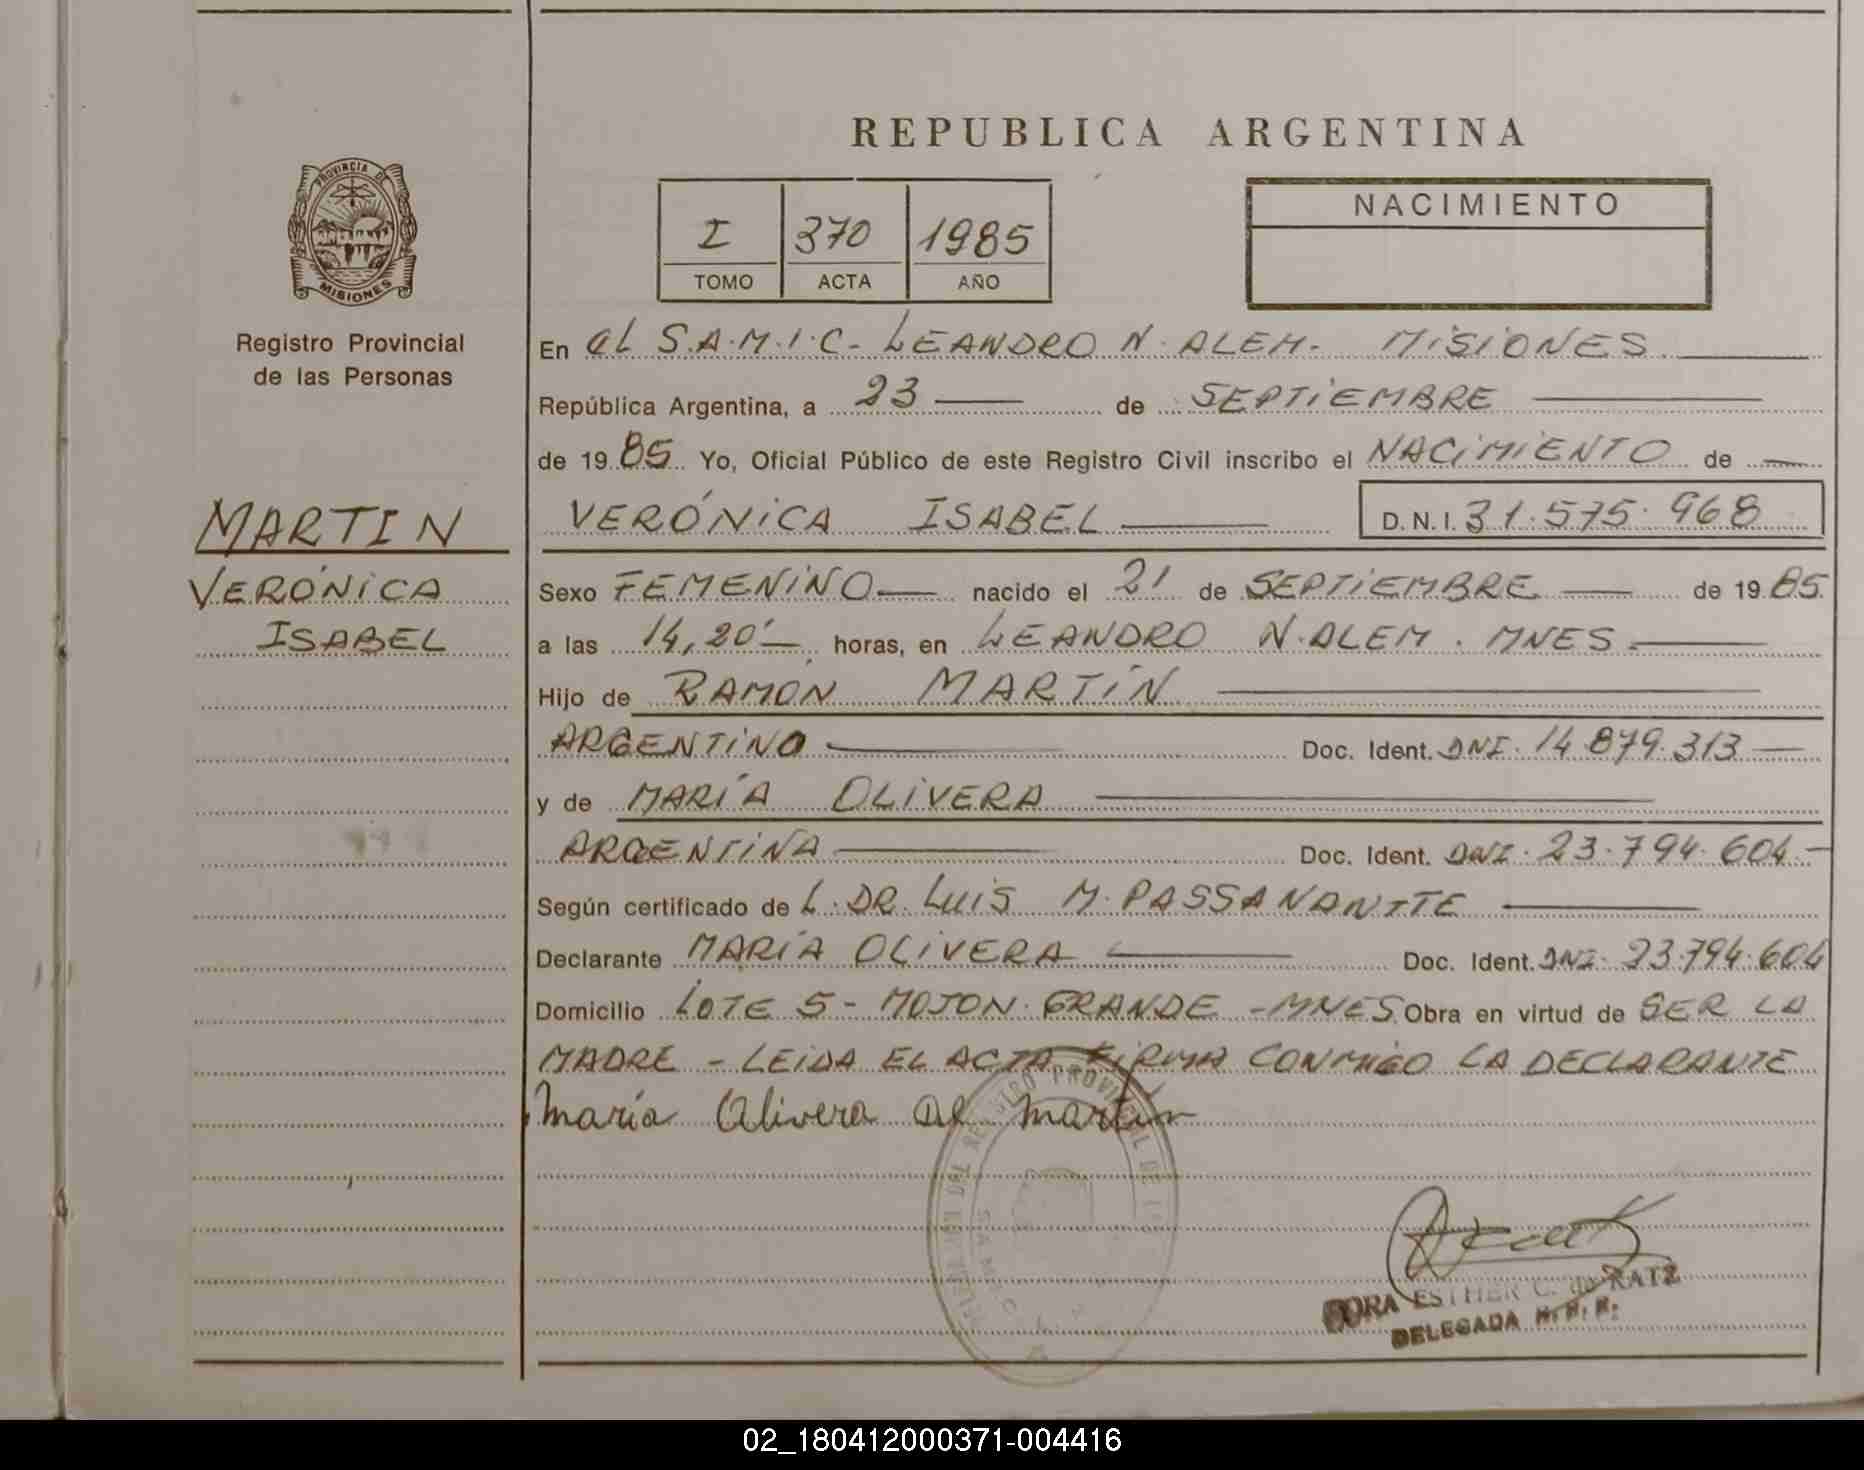 REPUBLICA ARGENTINA
PROVINCIA DE
MISIONES
Registro Provincial
de las Personas
I 370 1985
TOMO ACTA AÑO
NACIMIENTO
En el S.A.M.I.C- LEANDRO N. ALEM- MISIONES
República Argentina, a 23 de SEPTIEMBRE
de 1985 Yo, Oficial Público de este Registro Civil inscribo el NACIMIENTO de
MARTIN
VERÓNICA ISABEL D.N.I. 31.575.968
VERÓNICA
ISABEL
Sexo FEMENINO nacido el 21 de SEPTIEMBRE de 1985
a las 14,20'- horas, en LEANDRO N. ALEM. MNES
Hijo de RAMÓN MARTÍN
ARGENTINO Doc. Ident. DNI. 14.879.313
y de MARÍA OLIVERA
ARGENTINA Doc. Ident. DNI. 23.794.604-
Según certificado de L. DR. LUIS M. PASSANANTTE
Declarante MARÍA OLIVERA Doc. Ident. DNI. 23.794.604
Domicilio LOTE 5 - MOJON GRANDE - MNES Obra en virtud de SER LA
MADRE - LEIDA EL ACTA FIRMA CONMIGO LA DECLARANTE
María Olivera de Martín
DEL REGISTRO PROVINCIAL DE
ESTHER C. de KATZ
DELEGADA R.P.P.
02_180412000371-004416